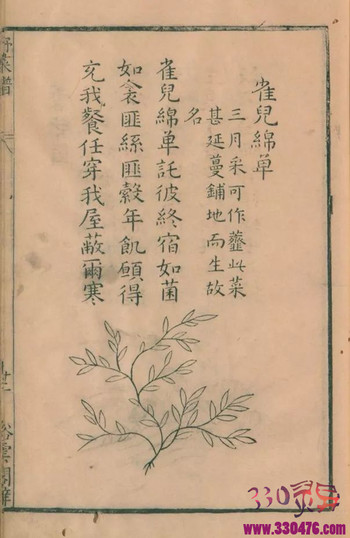 雀兒綿單
三月采可作虀此菜
甚延蔓鋪地而生故
名
雀兒綿單託彼終宿如菌
如衾匪絲匪縠年飢願得
充我餐任穿我屋蔽爾寒
野菜譜
330
www.330476.com